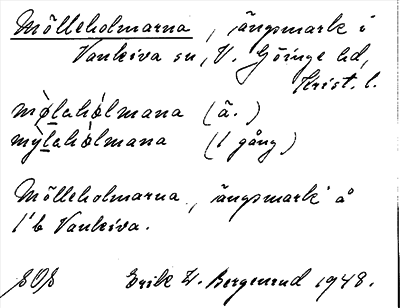 Mölleholmarna, ängsmark i
Vankiva sn, V. Göinge hd,
Krist. l.
mø̀lahòlmana (ä.)
mỳlahòlmana (1 gång)
Mölleholmarna, ängsmark å
1⁄6 Vankiva.
SOS Erik W. Bergenrud 1948.